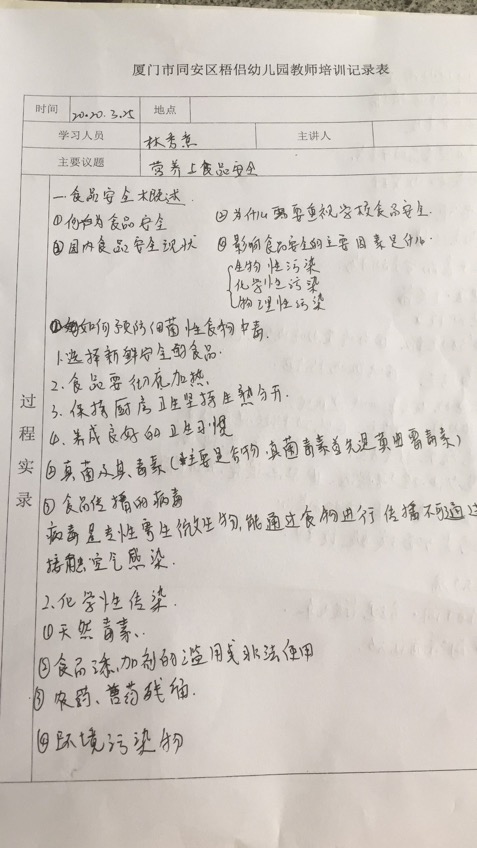 厦门市同安区梧侣幼儿园教师培训记录表
时间 2020.3.25 地点
学习人员 林秀 主讲人
主要议题 营养与食品安全
过程实录
一食品安全概述
①何为食品安全 ②为什么要重视学校食品安全
③国内食品安全现状 ④影响食品安全的主要因素是什么.
生物性污染
化学性污染
物理性污染
①如何预防细菌性食物中毒.
1.选择新鲜安全的食品.
2.食品要彻底加热
3.保持厨房卫生坚持生熟分开.
4.养成良好的卫生习惯
②真菌及其毒素(主要是谷物,真菌毒素首先退黄曲霉毒素)
③食品传播的病毒
病毒是专性寄生微生物,能通过食物进行传播不可通过
接触空气感染.
2.化学性传染.
①天然毒素、
②食品添加剂的滥用或非法使用
③农药、兽药残留.
④环境污染物